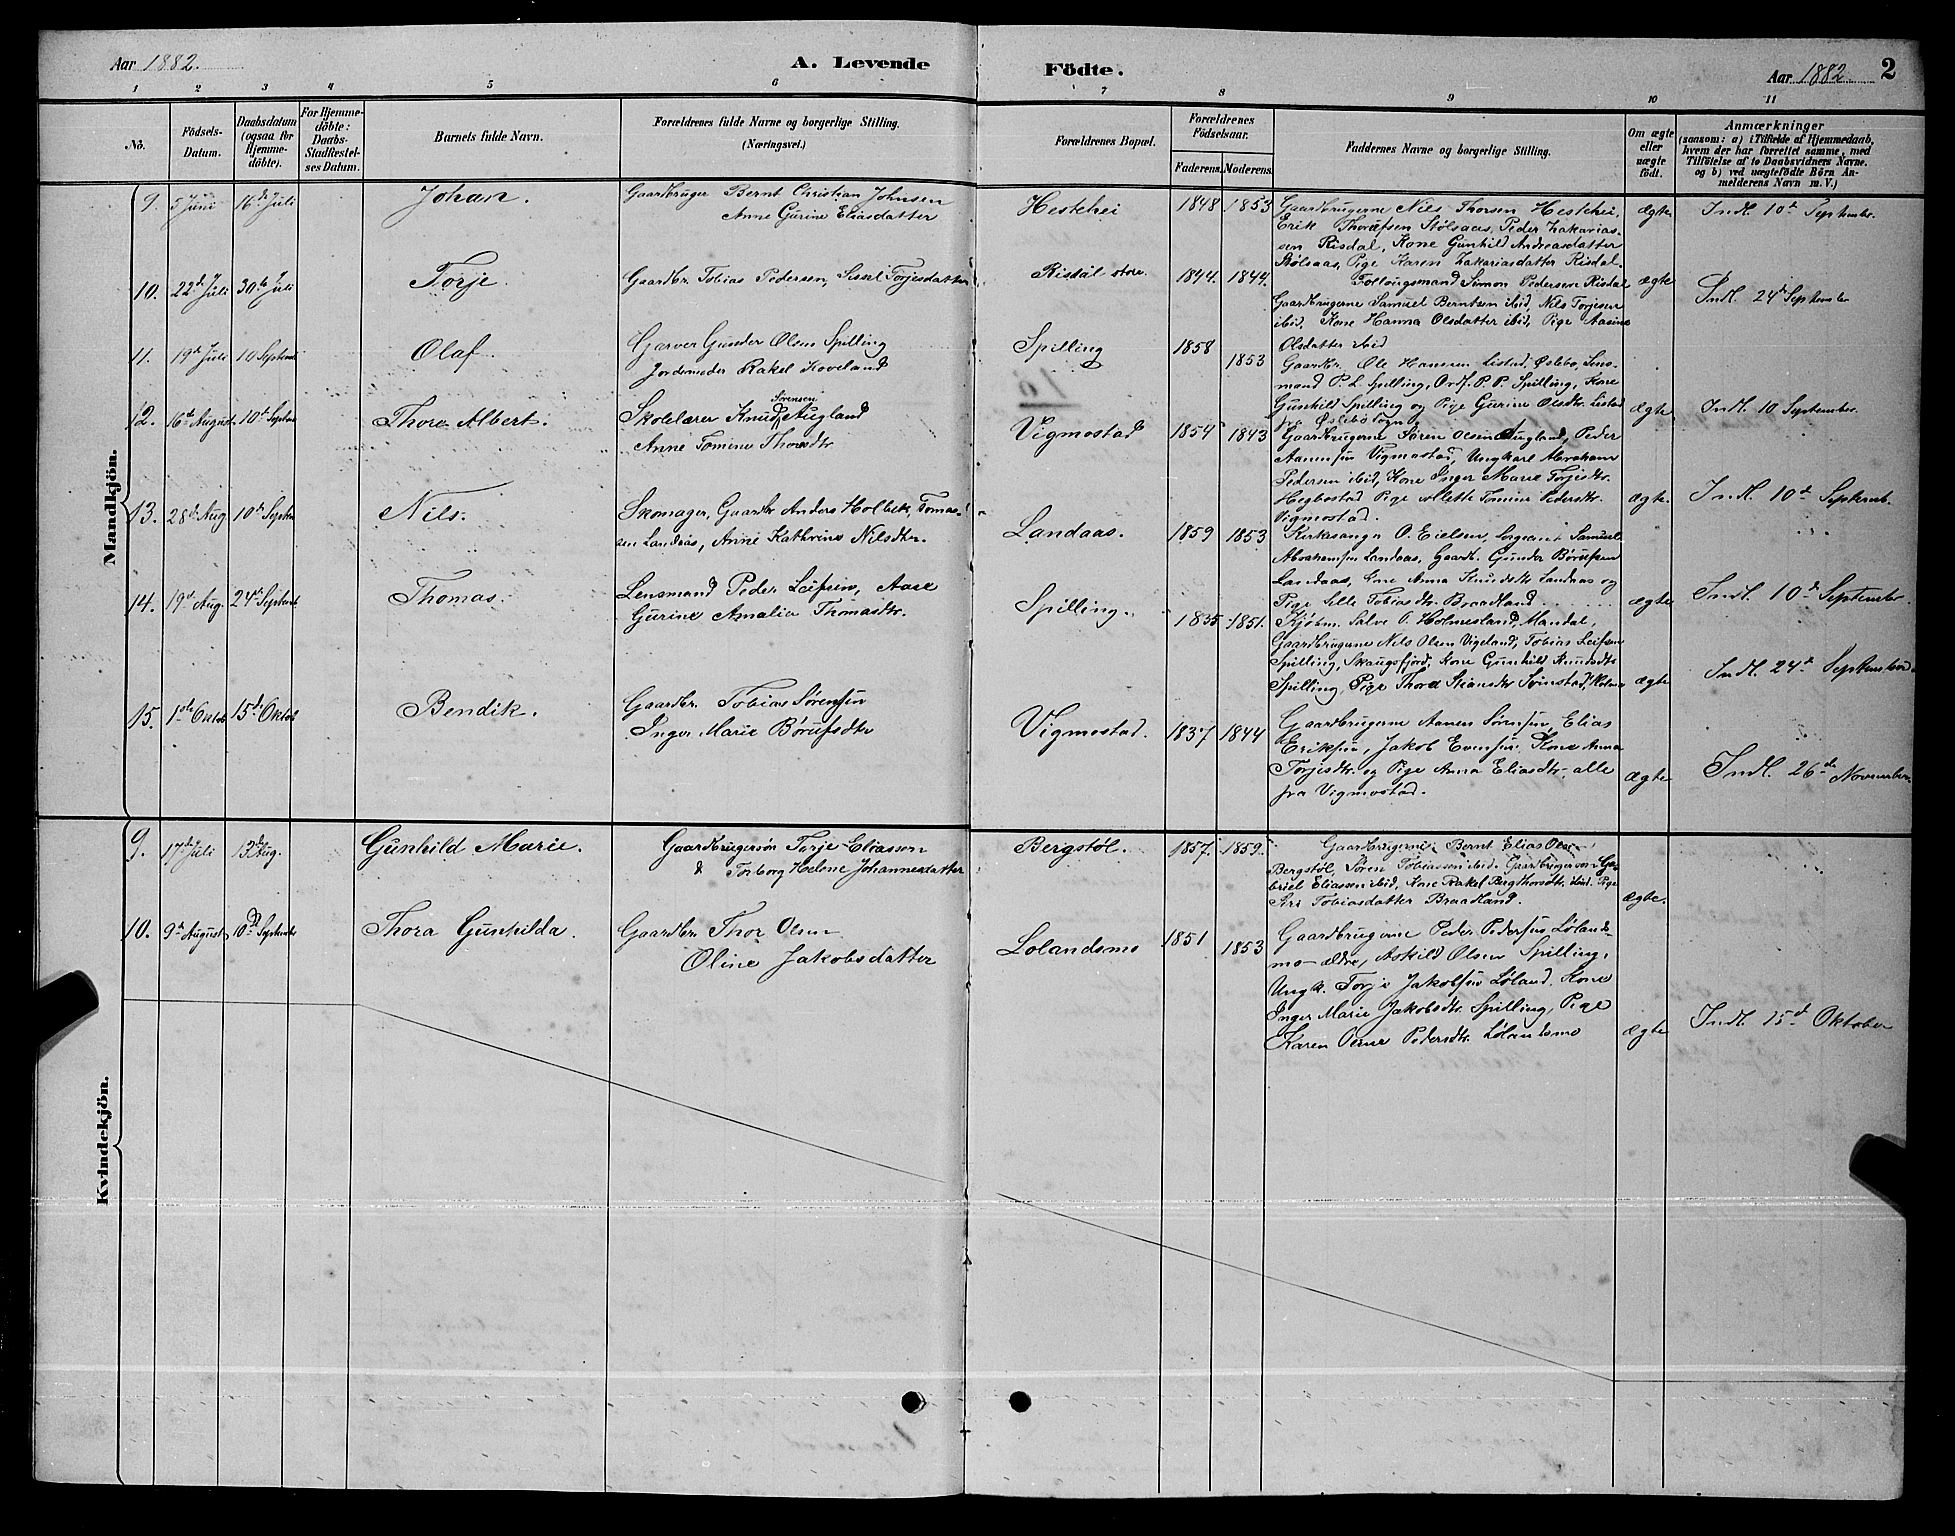 Aar 1882.
A. Levende
Födte.
Aar 1882
2
1 2 3 4 5 6 7 8 9 10 11
Nô.
Födsels-
Datum.
Daabsdatum
(ogsaa for
Hjemme-
döbte).
For Hjemme-
döbte:
Daabs-
Stadfæstel-
ses Datum.
Barnets fulde Navn.
Forældrenes fulde Navne og borgerlige Stilling.
(Næringsvei.)
Forældrenes Bopæl.
Forældrenes
Födselsaar.
Faderens. Moderens.
Faddernes Navne og borgerlige Stilling.
Om ægte
eller
uægte
födt.
Anmærkninger
(saasom: a) i Tilfælde af Hjemmedaab,
hvem der har forrettet samme, med
Tilföielse af to Daabsvidners Navne.
og b) ved uægtefödte Börn An-
melderens Navn m. V.)
Mandkjön.
9. 5 Juni 16de Juli Johan. Gaardbruger Bernt Christian Johnsen
Anne Gurine Eliasdatter
Hestehei 1848 1853
Gaardbrugerne Niels Thorsen Hestehei,
Erik Thorufsen Stølsaas, Peder Zakarias-
sen Risdal, Kone Gunhild Andreasdatter
Stølsaas, Pige Karen Zakariasdatter Risdal.
Ægte Indl. 10de September
10. 22de Juli 30te Juli Torje. Gaardbr. Tobias Pedersen, Sissel Torjesdatter
Risdal store. 1844. 1844.
Follougsmand Simon Pedersen Risdal
Gaardbrugerne Samuel Berntsen ibid, Nils Torjesen
ibid, Kone Hanna Olsdatter ibid, Pige Aasine
Olsdatter ibid
ægte Indl. 24de September
11. 19de Juli 10 Septemb Olaf. Garver Gunder Olsen Spilling
Jordemoder Rakel Koveland
Spilling 1858 1853
Gaardbr. Ole Hanssen Listad, Øslebø, Lens-
mand P. L. Spilling, Ordf. P. P. Spilling, Kone
Gunhild Spilling og Pige Gurine Olsdtr. Listad
fra Øslebø Sogn
Ægte Indl. 10 September.
12. 16de August 10de Septbr Thore Albert. Skolelærer Knud Sørensen Augland
Anne Tomine Thorsdtr
Vigmostad 1854 1843
Gaardbrugerne Søren Olsen Augland, Peder
Aanensen Vigmostad, Ungkarl Abraham
Pedersen ibid, Kone Inger Marie Torjesdtr.
Hegbostad Pige Tomine Pedersdtr.
Vigmostad.
ægte. Indl. 10de September
13. 28de Aug 10de Septbr Nils. Skomager, Gaardbr Anders Holbek Tomas-
sen Landaas, Anne Kathrine Nilsdtr.
Landaas. 1859 1853
Kirkesanger O. Eielsen, Sergeant Samuel
Abrahamsen Landaas, Gaardb. Gunder Børufsen
Landaas, Kone Anna Knudsdtr Landaas og
Pige Tobiasdtr. Braadland
ægte Indl. 10de September.
14. 19de Aug. 24de Septemb Thomas. Lensmand Peder Leifsen, Aase
Gurine Amalia Thomasdtr.
Spilling. 1835 1851.
Kjøbm. Salve O. Holmesland, Mandal,
Gaardbrugerne Nils Olsen Vigeland, Tobias Leifsen
Spilling, Skaugsfjord, Kone Gunhild Knudsdtr
Spilling, Pige Thora Svinstad, Holme
ægte Indl. 24de September
15. 1ste Oktob 15de Oktob Bendik. Gaardbr. Tobias Sørensen
Inger Marie Børufsdtr
Vigmostad. 1837 1844
Gaardbrugerne Aanen Sørensen, Elias
Eriksen, Jakob Evensen, Kone Anna
Torjesdtr. og Pige Anna Eliasdtr. alle
fra Vigmostad.
Ægte Indl. 26de November.
Kvindekjön.
9. 17de Juli 13de Aug. Gunhild Marie. Gaardbrugersøn Torje Eliassen
& Torborg Helene Johannesdatter
Bergstøl. 1857. 1859.
Gaardbrugerne Bernt Elias Olsen
Bergstøl, Søren Tobiassen ibid. Gaardbrugersøn Ga-
briel Eliassen ibid, Kone Rakel Bergthorsdtr. ibid. Pige
Siri Tobiasdatter Braadland.
Ægte.
10. 9de August 10de Septembr Thora Gunhilda. Gaardbr. Thor Olsen
Oline Jakobsdatter
Lolandsmo 1851 1853
Gaardbrugerne Peder Pedersen Løland-
mo ældre, Askild Olsen Spilling,
Ungk. Torje Jakobsen Løland, Kone
Inger Marie Jakobsdtr. Spilling, Pige
Karen Pedersdtr. Lølandsmo
Ægte Indl. 15de Oktober